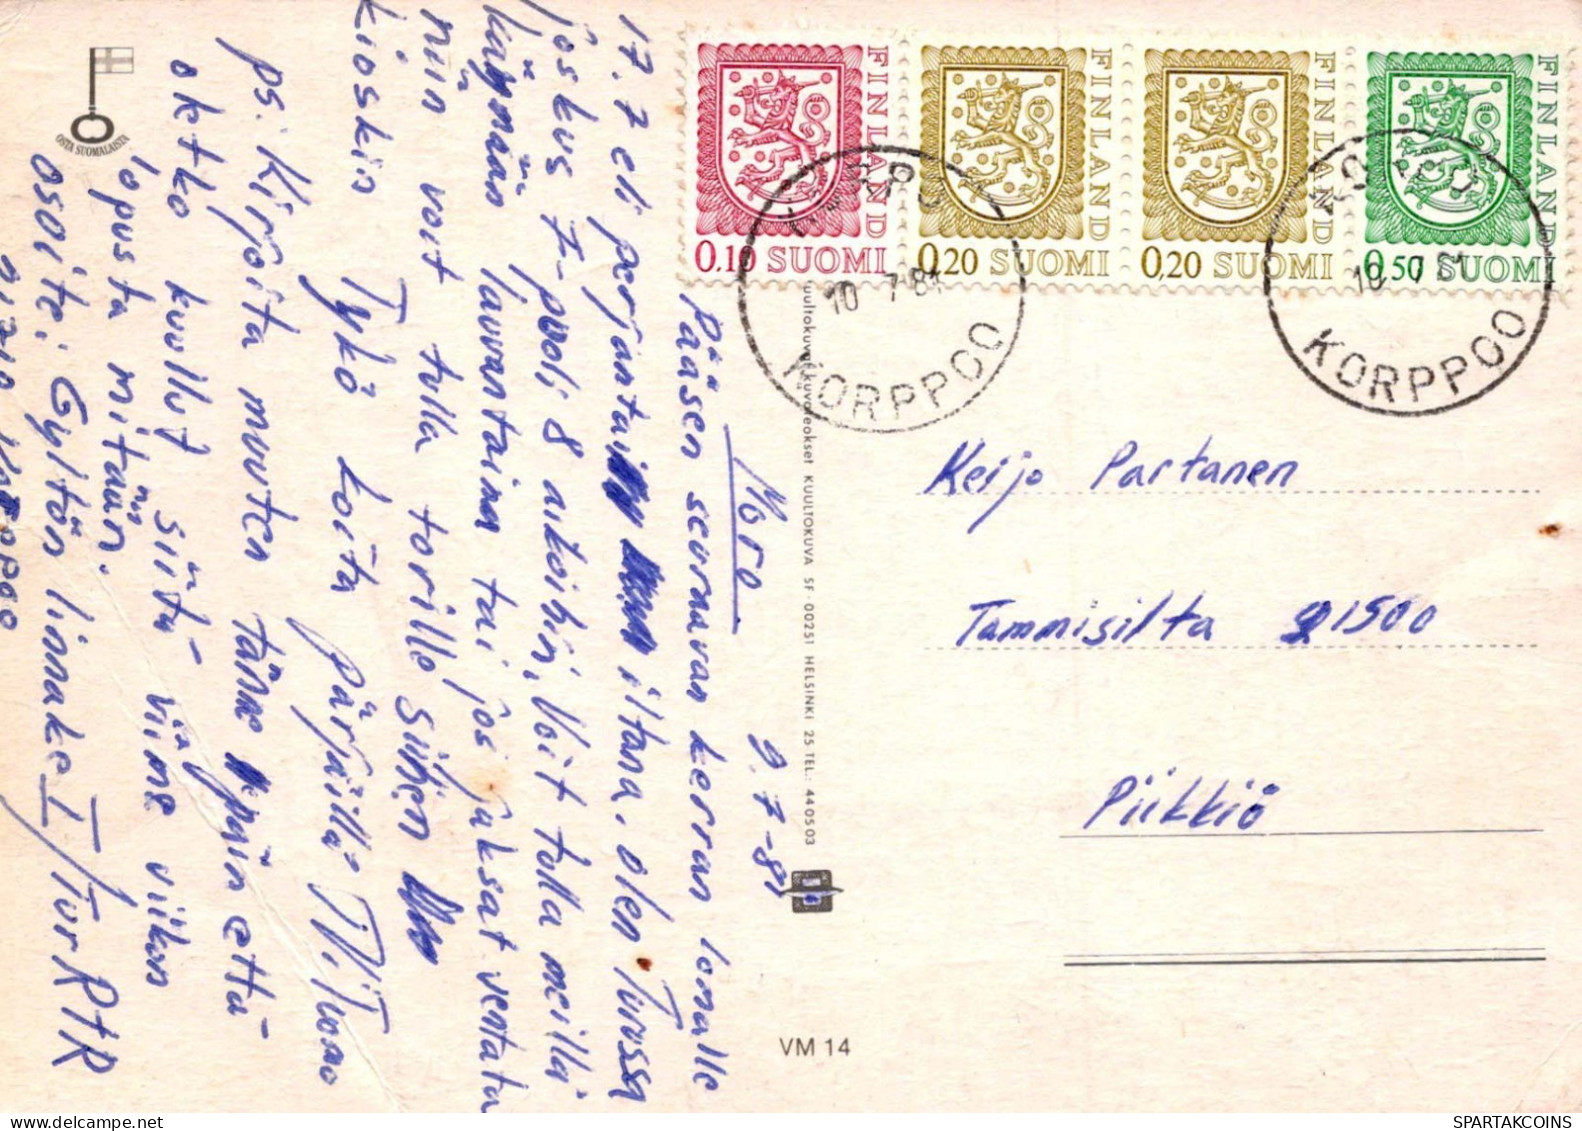 OSTA SUOMALAISTA
FINLAND
0.10 SUOMI
FINLAND
0.20 SUOMI
FINLAND
0.20 SUOMI
FINLAND
0.50 SUOMI
KORPO
10 7 81
KORPPOO
KORPO
10 7 81
KORPPOO
Moro 9.7-81
Pääsen seuraavan kerran lomalle
17.7 eli perjantai iltana. olen Turussa
joskus 7-puoli 8 aikoihin, Voit tulla meillä
käymän lauvantaina tai jos juksat vertata
niin voit tulla torille siihen
kioskin
Tykö koita pärjäillä
ps. Kirjoita muuten tänne päin että
oletko kuullut siitä viime viikon
lopusta mitään.
osoite: Gyltön linnake I/TurRtR
Keijo Partanen
Tammisilta 21500
Piikkiö
KUULTOKUVA SF - 00251 HELSINKI 25 TEL.: 440503
VM 14
WWW.SPARTAKCOINS.COM